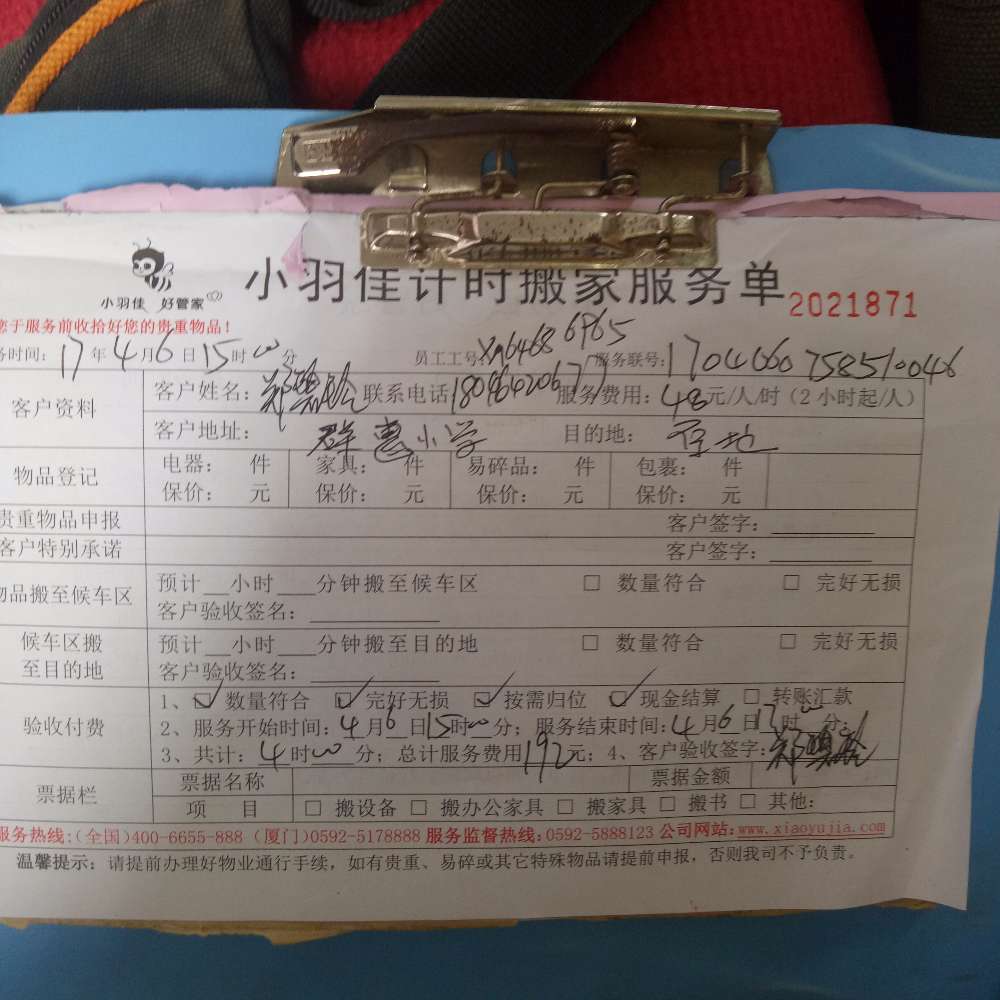 小羽佳 好管家
小羽佳计时搬家服务单 2021871
您于服务前收拾好您的贵重物品！
务时间：17年4月6日15时00分 员工工号：Xg6468 6765 服务联号：1704060758510046
客户资料 客户姓名：郑 联系电话 服务费用：48元/人/时（2小时起/人）
客户地址：群惠小学 目的地：在地
物品登记 电器： 件 家具： 件 易碎品： 件 包裹： 件
保价： 元 保价： 元 保价： 元 保价： 元
贵重物品申报 客户签字：
客户特别承诺 客户签字：
物品搬至候车区 预计__小时___分钟搬至候车区 □ 数量符合 □ 完好无损
客户验收签名：
候车区搬至目的地 预计__小时___分钟搬至目的地 □ 数量符合 □ 完好无损
客户验收签名：
验收付费 1、☑数量符合 ☑完好无损 ☑按需归位 ☑现金结算 □转账汇款
2、服务开始时间：4月6日15时00分；服务结束时间：4月6日17时00分；
3、共计：4时00分；总计服务费用192元；4、客户验收签字：郑
票据栏 票据名称 票据金额
项 目 □ 搬设备 □ 搬办公家具 □ 搬家具 □ 搬书 □ 其他：
服务热线：（全国）400-6655-888（厦门）0592-5178888 服务监督热线：0592-5888123 公司网站：www.xiaoyujia.com
温馨提示：请提前办理好物业通行手续，如有贵重、易碎或其它特殊物品请提前申报，否则我司不予负责。